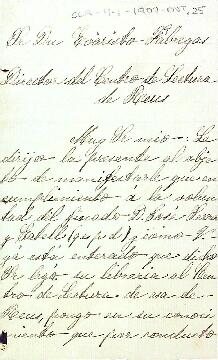 CLR-4-1-1907-ENT, 25
Sr. Dn. Evaristo Fábregas
Director del Centro de Lectura
de Reus
Muy Sr. mio: Le
dirijo la presente al obje-
to de manifestarle que en
cumplimiento á la volun-
tad del finado D. José
y (q.e.p.d.) y como V.
ya está enterado que dicho
Sr. legó su libreria al Cen-
tro de Lectura de esa de
Reus, pongo en su conoci-
miento que por conducto